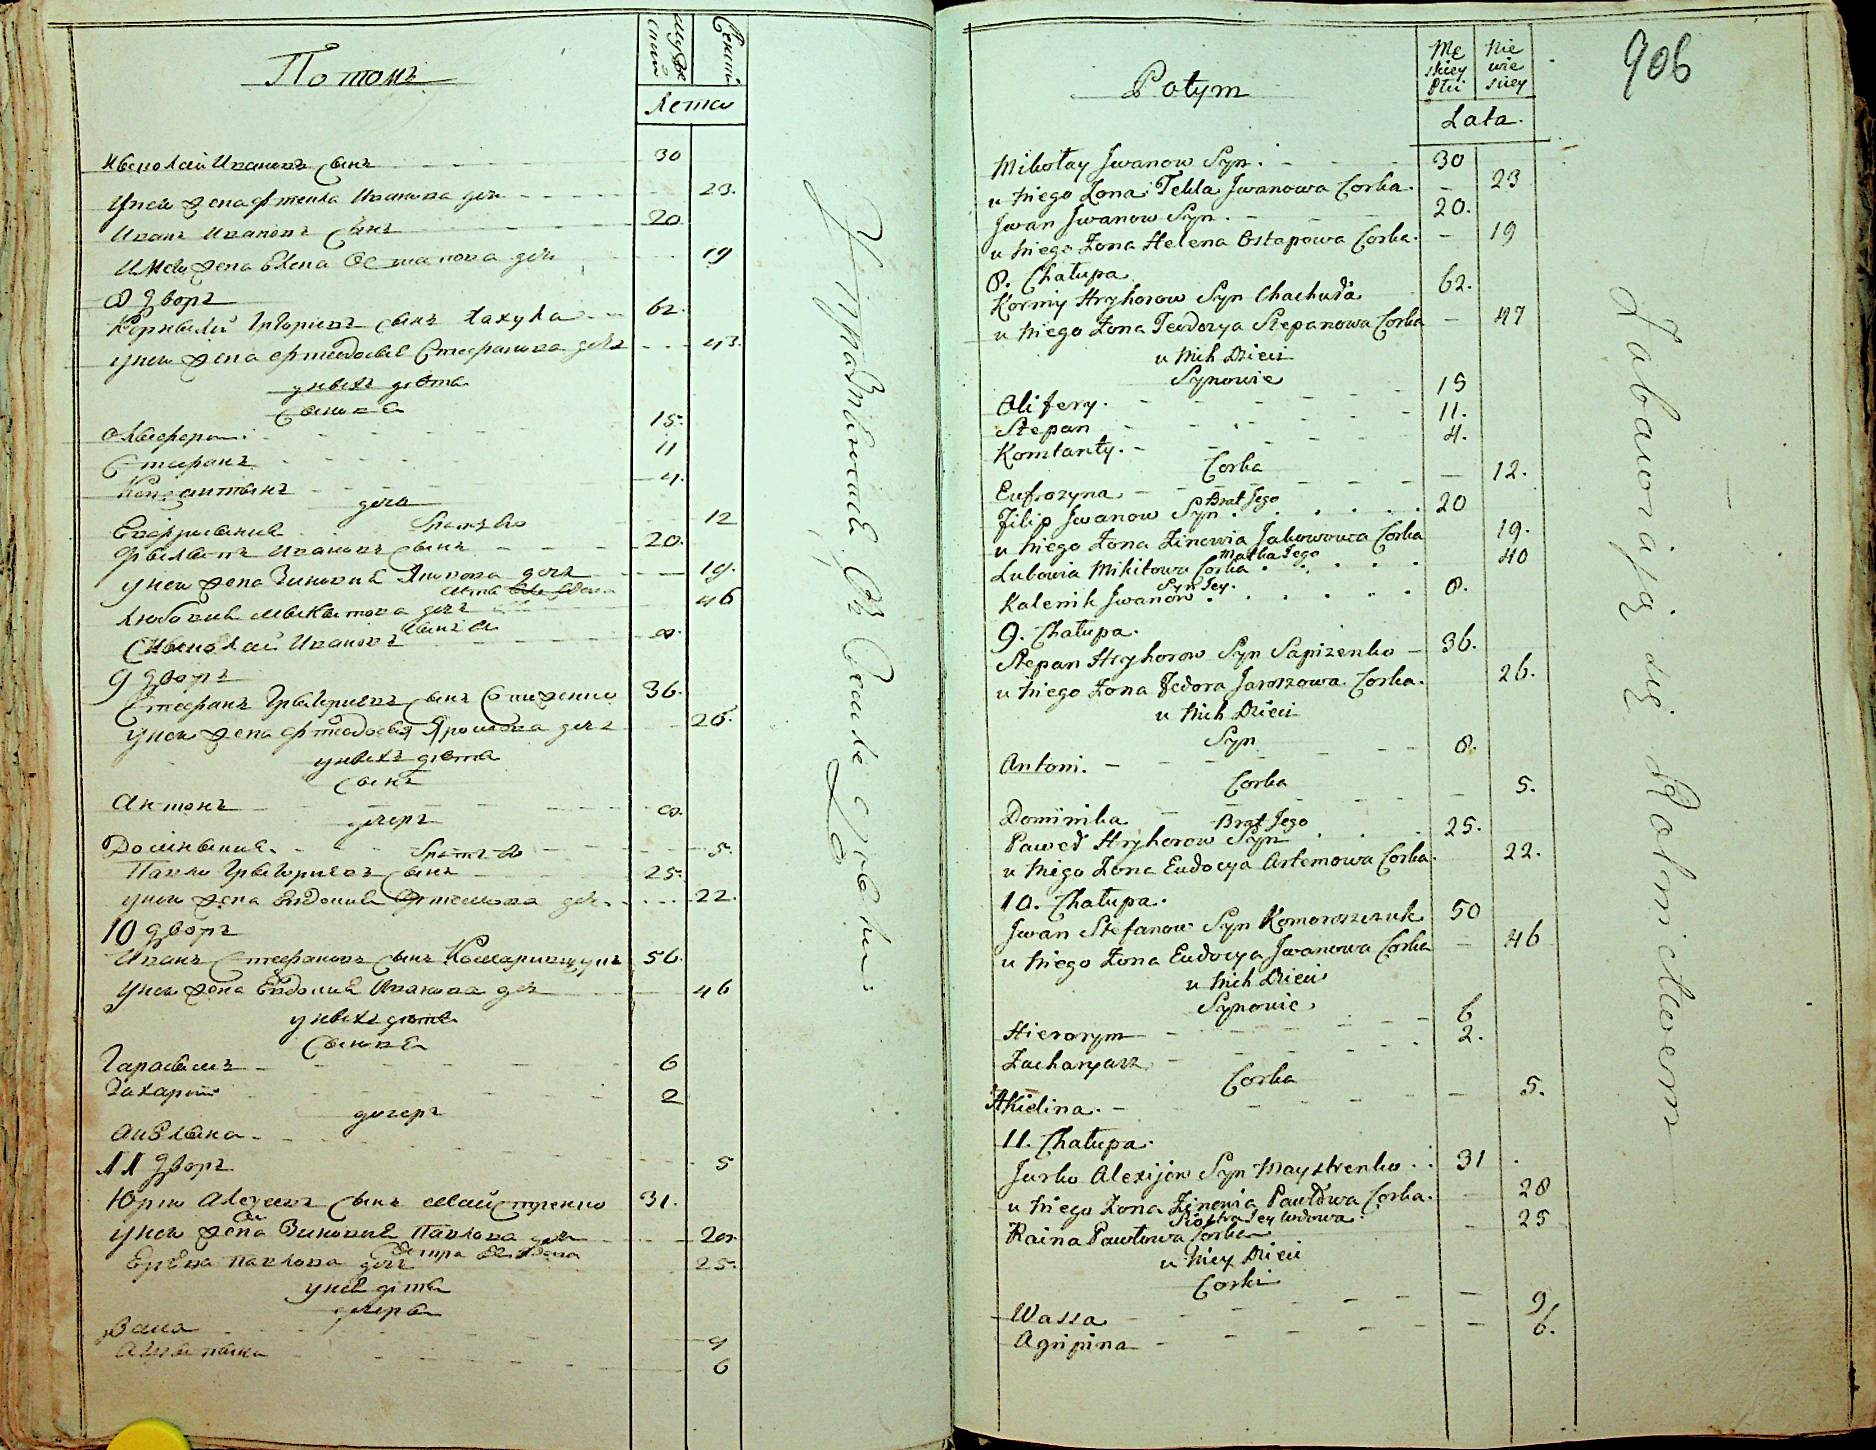 Потомъ
мужеска
женска
Лета
Николай Ивановъ сынъ 30
у него жена Фтекла Иванова дочь 23.
Иванъ Ивановъ сынъ 20
у него жена Елена Остапова дочь 19
8 дворъ
Корнилий Григориевъ сынъ Хахула 62.
у него жена Фтеодосия Стефанова дочь 43.
у нихъ дети
сыновья
Олиферий 15.
Стефанъ 11
Константинъ 4.
дочь
Евфросиния 12
братъ его
Филипъ Ивановъ сынъ 20.
у него жена Зиновия Якимова дочь 19.
Любовия Микитова дочь 46
сынъ ея
Николай Ивановъ 8.
9 дворъ
Стефанъ Григориевъ сынъ Сапиженко 36.
у него жена Фтеодосия Ярошова дочь 26.
у нихъ дети
сынъ
Антонъ 8.
дочерь
Доминикия. 5.
братъ его
Павло Григориевъ сынъ 25.
у него жена Евдокия Артемова дочь. 22.
10 дворъ
Иванъ Стефановъ сынъ Комарищукъ 56.
у него жена Евдокия Иванова дочь 46
у нихъ дети
сыновья
Гарасимъ 6
Захарий 2
дочерь
Акилина.
11 дворъ 5
Юрко Алексеевъ сынъ Майстренко 31.
у него жена Зиновия Павлова дочь 28.
сестра ея вдова
Ирина Павлова дочь 25.
у ней дети
дочери
Васа 9
Агрипина 6
906
Potym
Męskiey Płci
Niewieściey
Lata.
Mikołay Jwanow Syn. 30
u niego Żona Tekla Jwanowa Corka. 23
Jwan Jwanow Syn. 20.
u niego Żona Helena Ostapowa Corka. 19
8. Chałupa
Korniy Hryhorow Syn Chachuła 62.
u niego Żona Teodozya Stepanowa Corka 47
u nich Dzieci
Synowie
Olifery. 15
Stepan 11.
Konstanty. 4.
Corka
Eufrozyna 12.
Brat Jego
Filip Jwanow Syn 20
u niego Żona Zinowia Jakowowa Corka 19.
Matka Jego
Lubowia Mikitowa Corka 40
Syn Jey.
Kalenik Jwanow 8.
9. Chałupa.
Stepan Hryhorow Syn Sapizenko 36.
u niego Żona Fedora Jaroszowa Corka. 26.
u nich Dzieci
Syn
Antoni. 8.
Corka
Dominika 5.
Brat Jego
Paweł Hryhorow Syn 25.
u niego Żona Eudocya Artemowa Corka. 22.
10. Chałupa.
Jwan Stefanow Syn Komoroszczuk 50
u niego Żona Eudocya Jwanowa Corka 46
u nich Dzieci
Synowie
Hieronym 6
Zacharyasz 2.
Corka
Akielina. 5.
11. Chałupa.
Jurko Alexijow Syn Maystrenko 31
u niego Żona Zinowia Pawłowa Corka. 28
Siostra Jey wdowa.
Raina Pawłowa Corka 25
u niey Dzieci
Corki
Wassa 9
Agripina 6.
Zabawiają się Rolnictwem